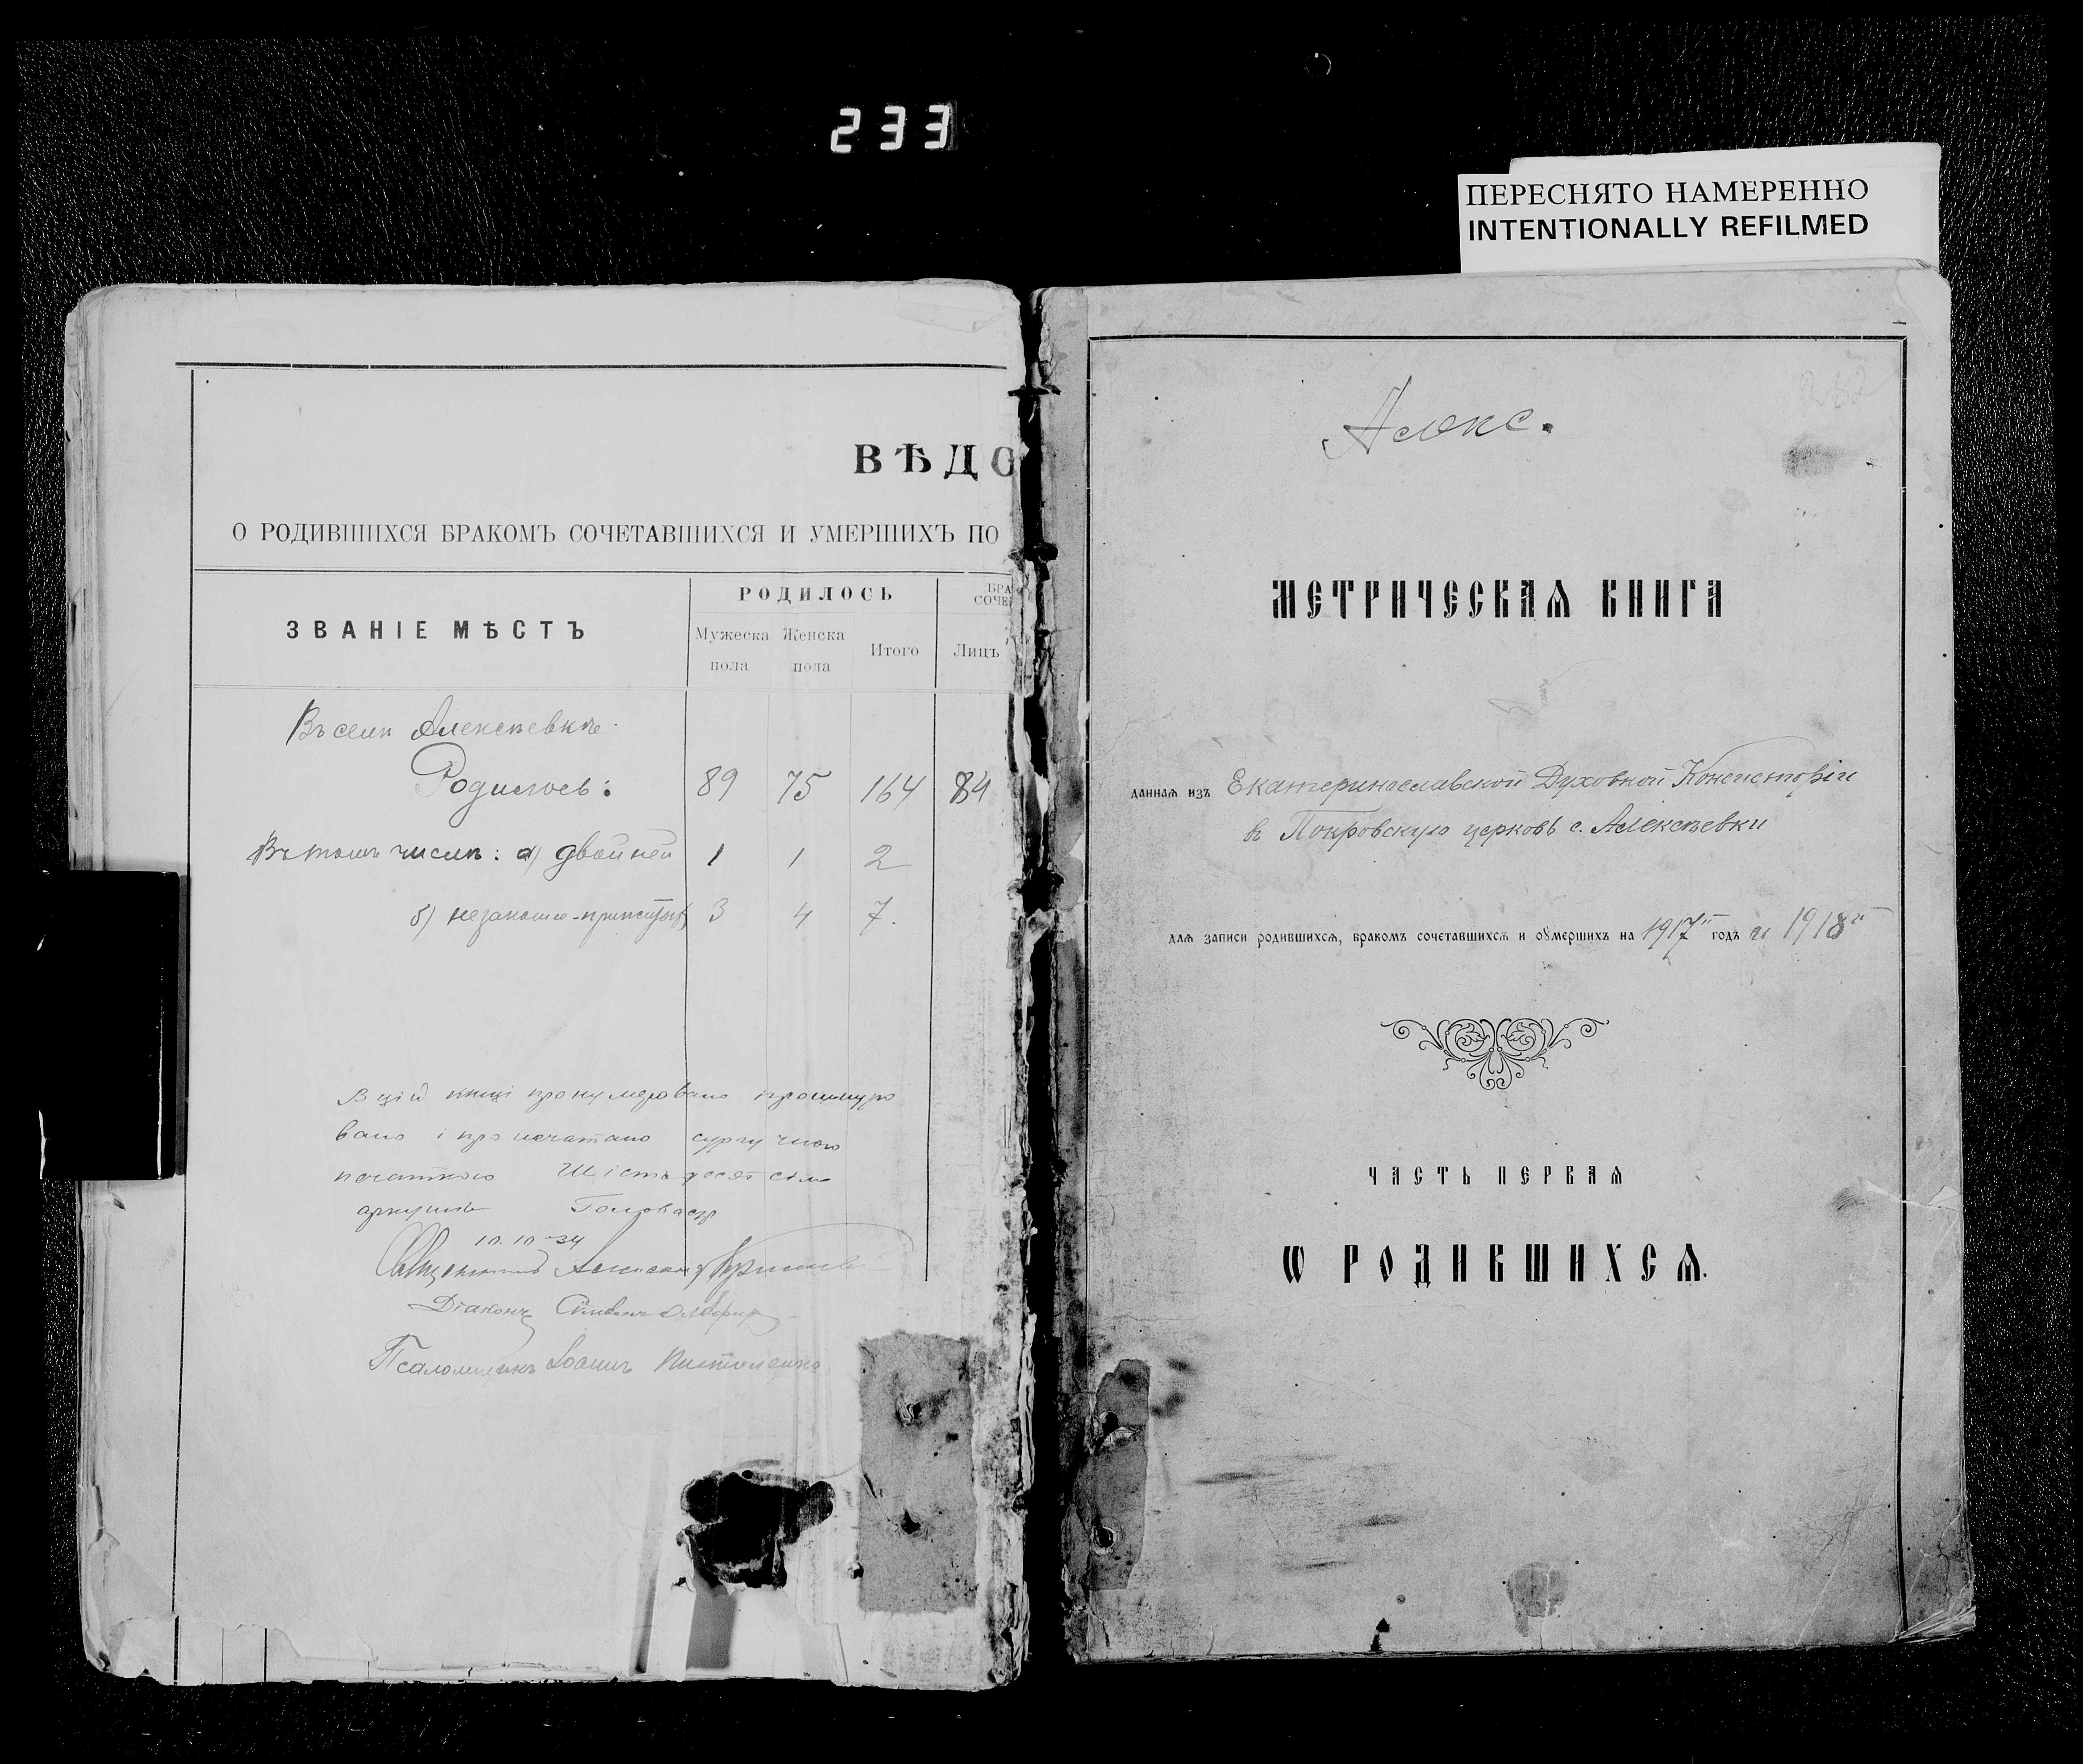 233
ПЕРЕСНЯТО НАМЕРЕННО
INTENTIONALLY REFILMED
ВѢДО
О РОДИВШИХСЯ БРАКОМЪ СОЧЕТАВШИХСЯ И УМЕРШИХЪ ПО
ЗВАНІЕ МѢСТЪ
РОДИЛОСЬ
БРА
СОЧЕ
Мужеска пола
Женска пола
Итого
Лицъ
Въ селѣ Алексѣевкѣ
Родилось: 89 75 164 84
Въ томъ числѣ: а) двойней 1 1 2
б) 3 4 7.
В цій книці пронумеровано і прошнуро
вано і про печатано сургучною
печаткою Шістьдесят сім
аркушів
10.10-34
Священникъ
Діаконъ
Псаломщикъ Іоаннъ
Алекс.
МЕТРИЧЕСКАѦ КНИГА
даннаѧ изъ Екатеринославской Духовной Консисторіи
въ Покровскую церковь с. Алексѣевки
длѧ записи родившихсѧ, бракомъ сочетавшихсѧ и оумершихъ на 1917й годъ и 1918й
ЧАСТЬ ПЕРВАѦ
Ѡ РОДИВШИХСѦ.